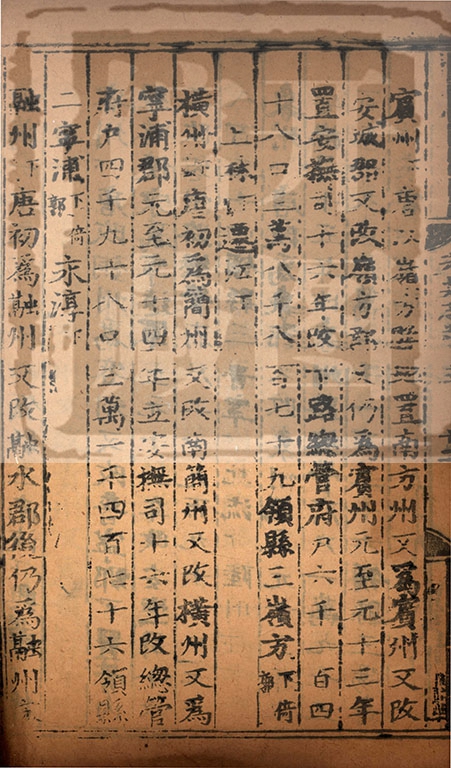 賓州下唐以嶺方縣地置南方州又爲賓州又改
安城郡又改嶺方郡又仍爲賓州元至元十三年
置安撫司十六年改下路總管府戶六千一百四
十八口三萬八千八百七十九領縣三嶺方下倚郭
上林下遷江下
橫州下唐初爲簡州又改南簡州又改橫州又爲
寧浦郡元至元十四年立安撫司十六年改總管
府戶四千九十八口三萬一千四百七十六領縣
二寧浦下倚郭永淳下
融州下唐初爲融州又改融水郡後仍爲融州